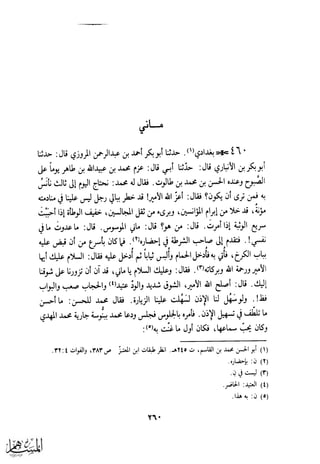 مـــاني
٤٦٠ – بغدادي(١). حدثنا أبو بكر أحمد بن عبدالرحمن المروزي قال: حدثنا
أبو بكر بن الأنباري قال: حدّثنا أبي قال: عزم محمد بن عبيدالله بن طاهر يوماً على
الصَّبوح وعنده الحسن بن محمد بن طالوت. فقال له محمد: نحتاج اليوم إلى ثالث نأنس
به فمن ترى أن يكون؟ فقال: أعزّ الله الأمير! قد خطر ببالي رجل ليس علينا في منادمته
مؤنة، قد خلا من إبرام المؤانسين، وبرىء من ثقل المجالسين، خفيف الوطأة إذا أحببتَ
سريع الوثبة إذا أمرت. قال: من هو؟ قال: ماني الموسوس. قال: ما عدوتَ ما في
نفسي!. فتقدم إلى صاحب الشرطة في إحضاره(٢). فما كان بأسرع من أن قبض عليه
بباب الكرخ، فأُتي به فأُدخل الحمام وأُلبس ثياباً ثم أُدخل عليه فقال: السلام عليك أيها
الأمير ورحمة الله وبركاته(٣). فقال: وعليك السلام يا ماني، قد آن أن تزورنا على شوقنا
إليك. قال: أصلح الله الأمير، الشوق شديد والودّ عتيد(٤) والحجاب صعب والبواب
فظ!. ولو سَهُل لنا الإذن لسَهُلت علينا الزيارة. فقال محمد للحسن: ما أحسن
ما تلطّف في تسهيل الإذن. فأمره بالجلوس فجلس ودعا محمد بنُوسة جارية محمد المهدي
وكان يحبّ سماعها، فكان أول ما غنت به(٥):
(١) أبو الحسن محمد بن القاسم، ت ٢٤٥هـ. انظر طبقات ابن المعتز ص ٣٨٣، والفوات ٤: ٣٢.
(٢) ن: بإحضاره.
(٣) ليست في ن.
(٤) العتيد: الحاضر.
(٥) ن: به هذا.
٢٦٠